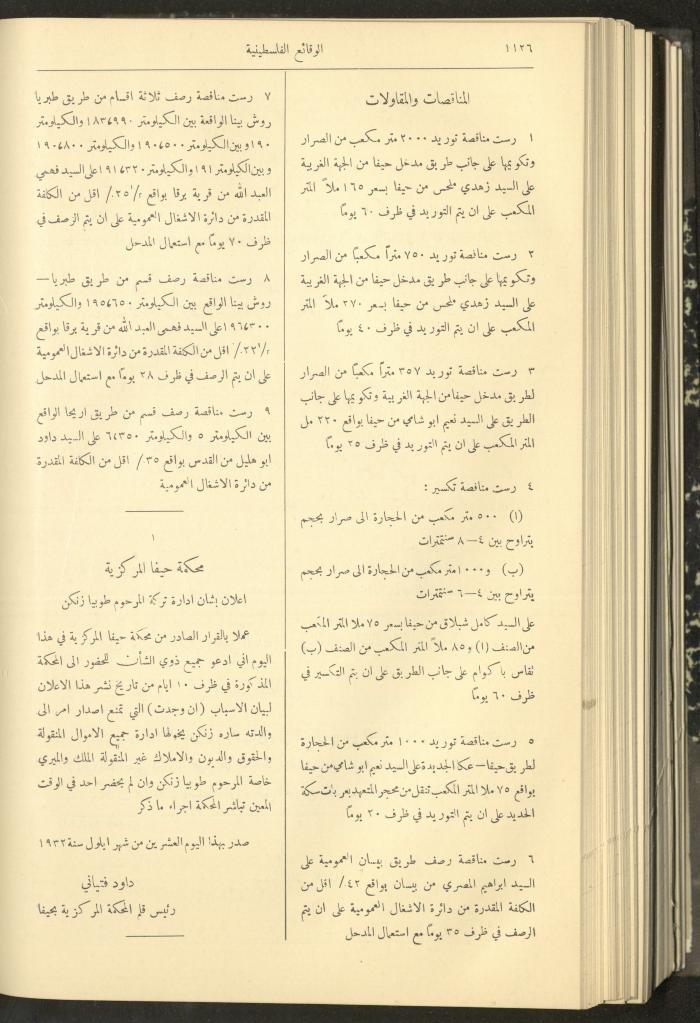 ١١٢٦
الوقائع الفلسطينية
المناقصات والمقاولات
١ رست مناقصة توريد ٢٠٠٠ متر مكعب من الصرار
وتكويمها على جانب طريق مدخل حيفا من الجهة الغربية
على السيد زهدي ملحس من حيفا بسعر ١٦٥ ملاً المتر
المكعب على ان يتم التوريد في ظرف ٦٠ يوماً
٢ رست مناقصة توريد ٧٥٠ متراً مكعباً من الصرار
وتكويمها على جانب طريق مدخل حيفا من الجهة الغربية
على السيد زهدي ملحس من حيفا بسعر ٢٧٠ ملاً المتر
المكعب على ان يتم التوريد في ظرف ٤٠ يوماً
٣ رست مناقصة توريد ٣٥٧ متراً مكعباً من الصرار
لطريق مدخل حيفا من الجهة الغربية وتكويمها على جانب
الطريق على السيد نعيم ابو شامي من حيفا بواقع ٢٢٠ مل
المتر المكعب على ان يتم التوريد في ظرف ٢٥ يوماً
٤ رست مناقصة تكسير :
(ا) ٥٠٠ متر مكعب من الحجارة الى صرار بحجم
يتراوح بين ٤–٨ سنتمترات
(ب) و١٠٠٠ متر مكعب من الحجارة الى صرار بحجم
يتراوح بين ٤–٦ سنتمترات
على السيد كامل شبلاق من حيفا بسعر ٧٥ ملا المتر المكعب
من الصنف (ا) و ٨٥ ملاً المتر المكعب من الصنف (ب)
تقاس باكوام على جانب الطريق على ان يتم التكسير في
ظرف ٦٠ يوماً
٥ رست مناقصة توريد ١٠٠٠ متر مكعب من الحجارة
لطريق حيفا – عكا الجديدة على السيد نعيم ابو شامي من حيفا
بواقع ٧٥ ملا المتر المكعب تنقل من محجر المتعهد بعربات سكة
الحديد على ان يتم التوريد في ظرف ٢٠ يوماً
٦ رست مناقصة رصف طريق بيسان العمومية على
السيد ابراهيم المصري من بيسان بواقع ٤٢٪ اقل من
الكلفة المقدرة من دائرة الاشغال العمومية على ان يتم
الرصف في ظرف ٣٥ يوماً مع استعمال المدحل
٧ رست مناقصة رصف ثلاثة اقسام من طريق طبريا
روش بينا الواقعة بين الكيلومتر ١٨٣٬٩٩٠ والكيلومتر
١٩٠ وبين الكيلومتر ١٩٠٬٥٠٠ والكيلومتر ١٩٠٬٨٠٠
وبين الكيلومتر ١٩١ والكيلومتر ١٩١٬٣٢٠ على السيد فهمي
العبد الله من قرية برقا بواقع ٢٥٪ اقل من الكلفة
المقدرة من دائرة الاشغال العمومية على ان يتم الرصف في
ظرف ٧٠ يوماً مع استعمال المدحل
٨ رست مناقصة رصف قسم من طريق طبريا –
روش بينا الواقع بين الكيلومتر ١٩٥٬٦٥٠ والكيلومتر
١٩٦٬٣٠٠ على السيد فهمي العبد الله من قرية برقا بواقع
٢٢٪ اقل من الكلفة المقدرة من دائرة الاشغال العمومية
على ان يتم الرصف في ظرف ٢٨ يوماً مع استعمال المدحل
٩ رست مناقصة رصف قسم من طريق اريحا الواقع
بين الكيلومتر ٥ والكيلومتر ٦٬٣٥٠ على السيد داود
ابو هليل من القدس بواقع ٣٥٪ اقل من الكلفة المقدرة
من دائرة الاشغال العمومية
١
محكمة حيفا المركزية
اعلان بشان ادارة تركة المرحوم طوبيا زنكن
عملا بالقرار الصادر من محكمة حيفا المركزية في هذا
اليوم اني ادعو جميع ذوي الشأن للحضور الى المحكمة
المذكورة في ظرف ١٠ ايام من تاريخ نشر هذا الاعلان
لبيان الاسباب (ان وجدت) التي تمنع اصدار امر الى
والدته ساره زنكن يخولها ادارة جميع الاموال المنقولة
والحقوق والديون والاملاك غير المنقولة الملك والميري
خاصة المرحوم طوبيا زنكن وان لم يحضر احد في الوقت
المعين تباشر المحكمة اجراء ما ذكر
صدر بهذا اليوم العشرين من شهر ايلول سنة ١٩٣٢
داود فتياني
رئيس قلم المحكمة المركزية بحيفا